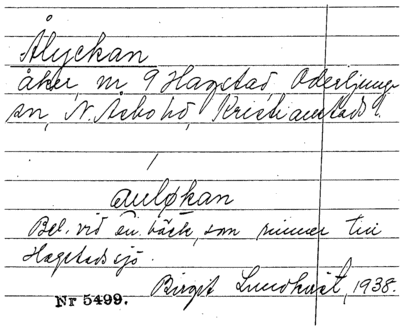 Ålyckan
åker, nr 9 Hagstad, Oderljunga
sn, N. Åsbo hd, Kristianstads l.
åuløkan
Bel. vid en bäck, som rinner till
Hagstadssjö.
Birgit Lundkvist, 1938.
Nr 5499.